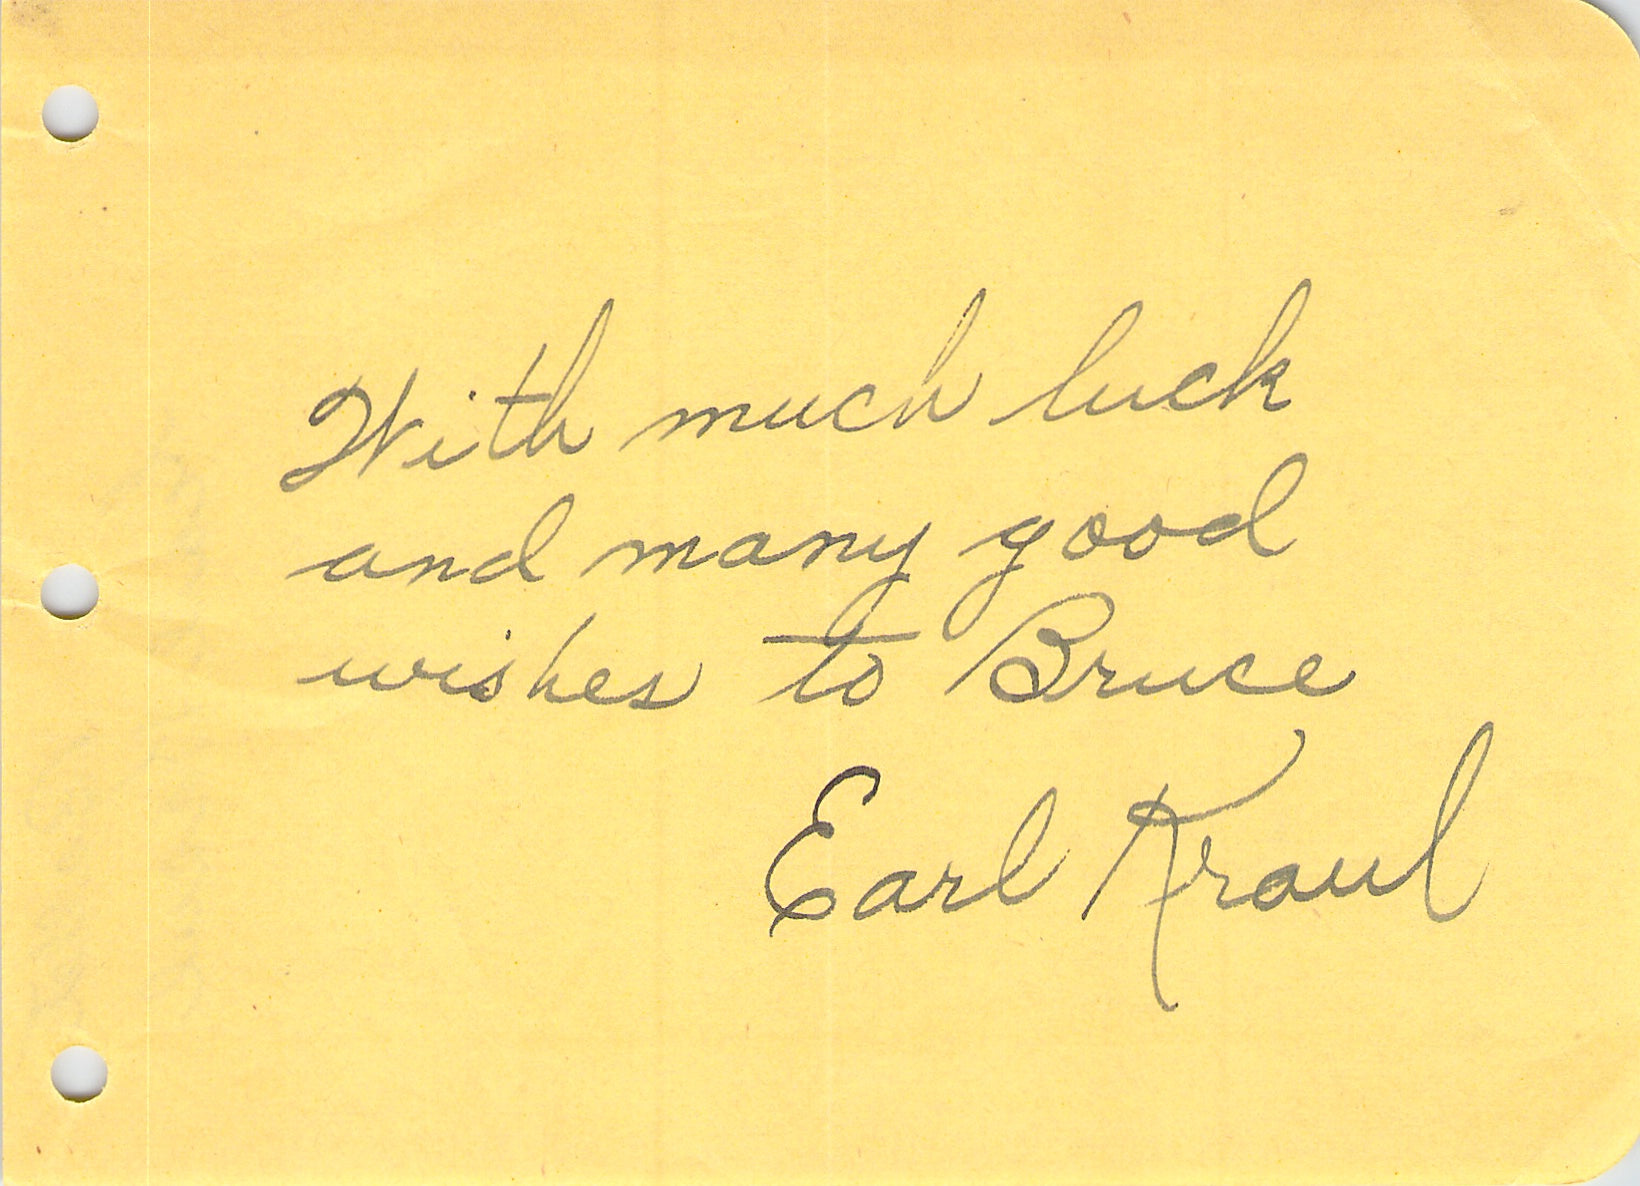 With much luck
and many good
wishes to Bruce
Earl Kraul